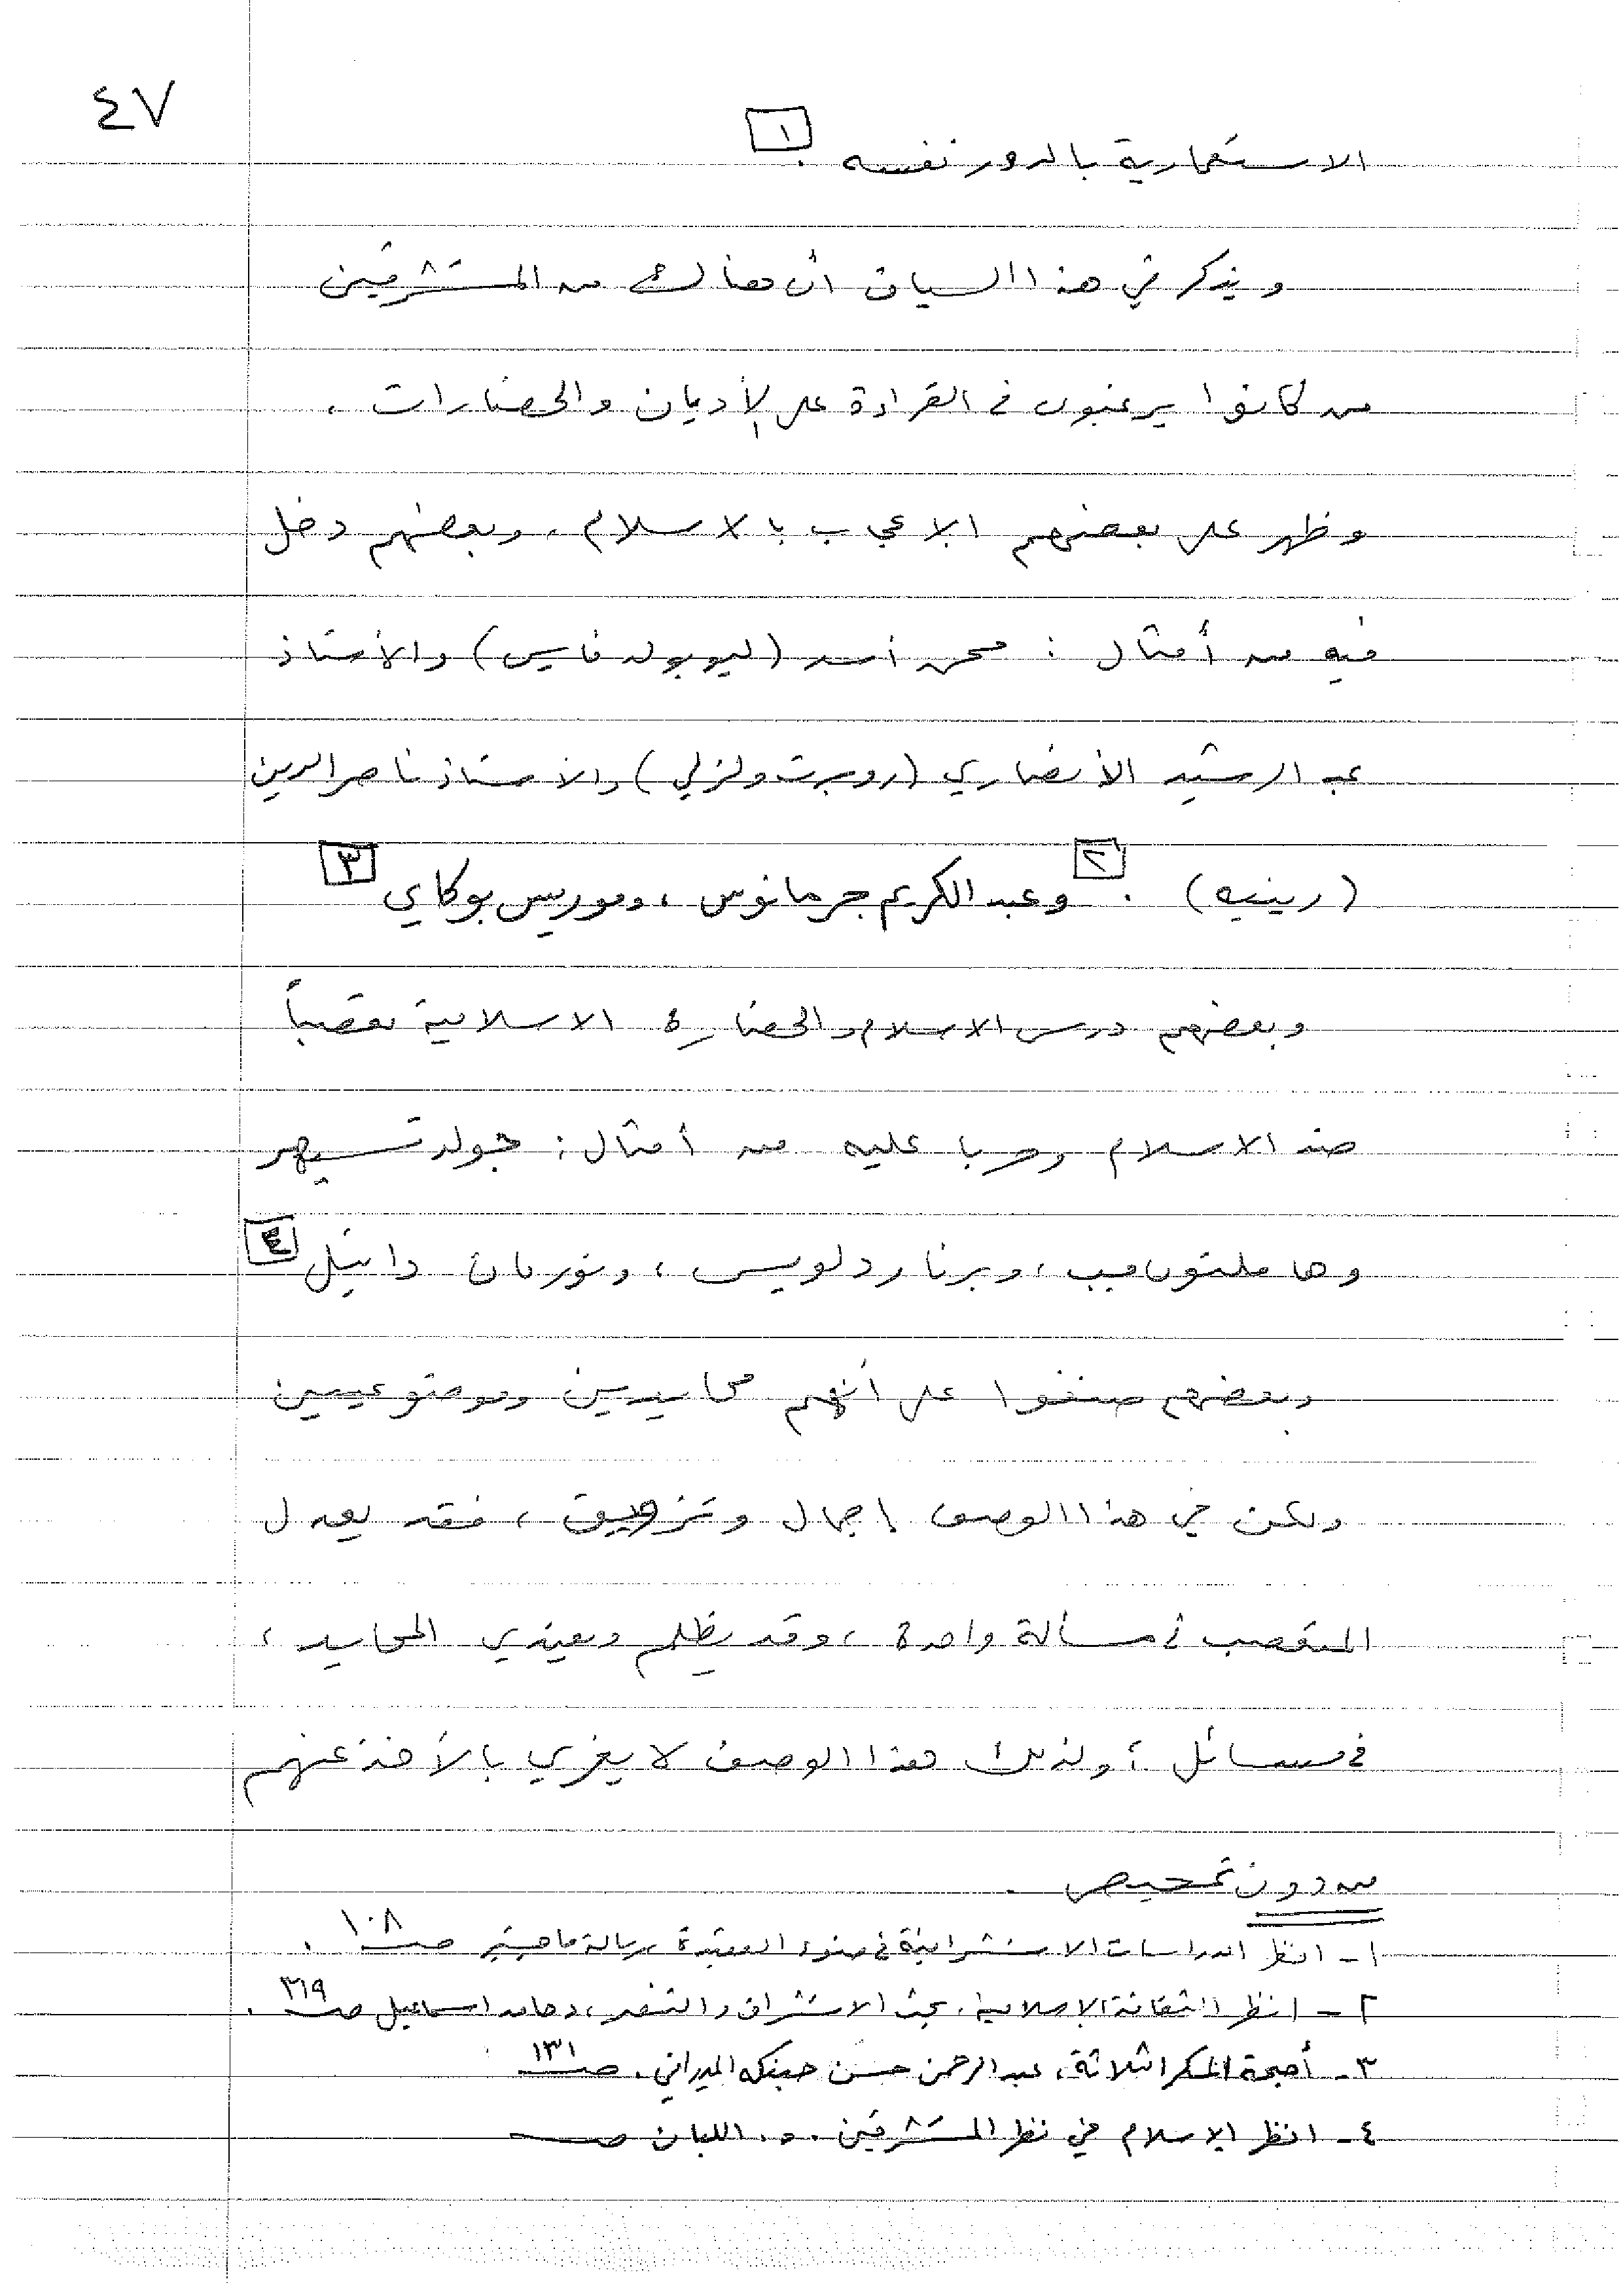 ٤٧
الاستعمارية بالدور نفسه . ١
ويذكر في هذا السياق أن هنالك من المستشرقين
من كانوا يرغبون في القراءة على الأديان والحضارات .
وظهر على بعضهم الاعجاب بالاسلام ، وبعضهم دخل
فيه من أمثال : محمد أسد (ليوبولد فايس) والأستاذ
عبد الرشيد الأنصاري (روبرت ولزلي) والأستاذ ناصر الدين
(رينيه) . ٢ وعبد الكريم جرمانوس ، وموريس بوكاي ٣
وبعضهم درس الاسلام والحضارة الاسلامية تعصباً
ضد الاسلام وحربا عليه من أمثال : جولد تسيهر
وهاملتون جب ، وبرنارد لويس ، ونورمان دانيل ٤
وبعضهم صنفوا على أنهم محايدين وموضوعيين
ولكن في هذا الوصف إجمال وتزويق ، فقد يعدل
المتعصب في مسألة واحدة ، وقد يظلم ويعتدي المحايد ،
في مسائل ؛ ولذلك هذا الوصف لا يغري بالأخذ عنهم
من دون تمحيص .
١ - انظر الدراسات الاستشراقية في ضوء العقيدة ، رسالة ماجستير ص ١٠٨ .
٢ - انظر الثقافة الإسلامية ، بحث الاستشراق والتنصير ، د حامد اسماعيل ص ٣١٩ .
٣ - أجنحة المكر الثلاثة ، عبد الرحمن حسن حبنكه الميداني . ص ١٣١
٤ - انظر الإسلام في نظر المستشرقين . د . اللبان ص